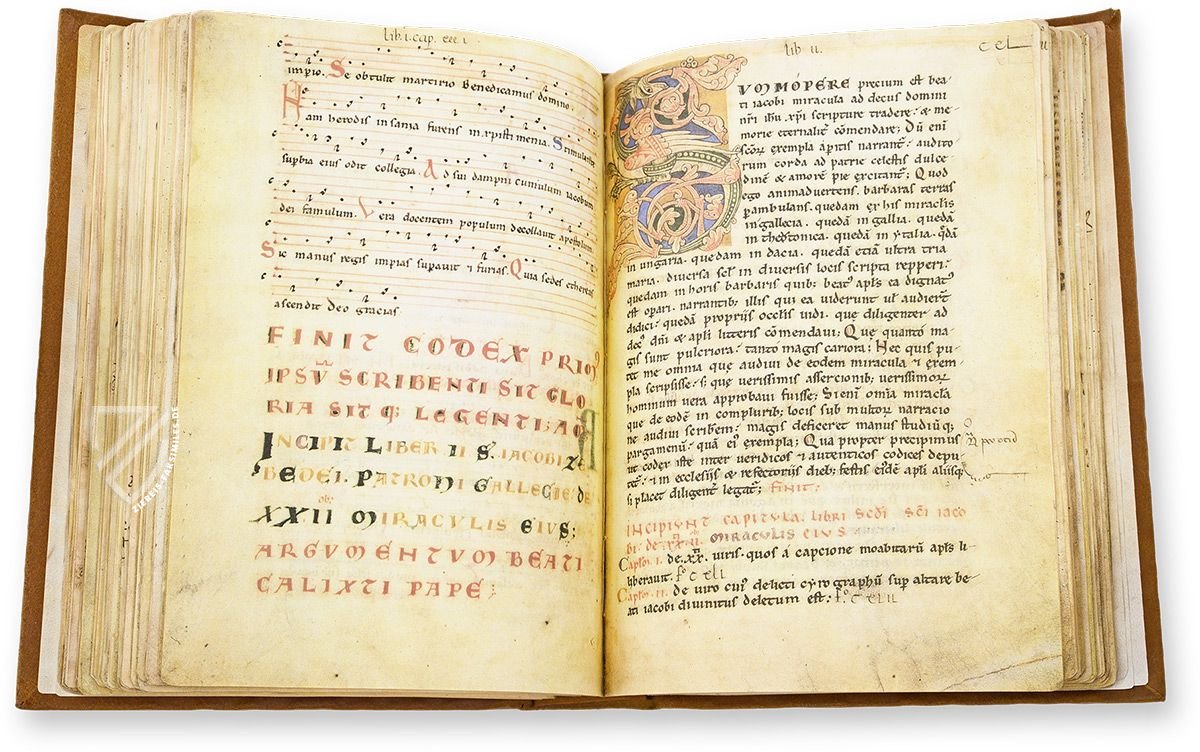 lib. i. cap. xxx i
impio. Se obtulit martirio Benedicamus domino.
Nam herodis insania furens in xpisti menia. Stimulante
supbia eius odit collegia. Ad sui dampni cumulum iacobum
dei famulum. Vera docentem populum decollavit apostolum
Sic manus regis impias supavit & furias. Quia sedes ethereas
ascendit deo gracias
FINIT CODEX PRIOR
IPSV SCRIBENTI SIT GLO
RIA SIT Q; LEGENTIBUS
INCIPIT LIBER II S. IACOBI ZE
BEDEI. PATRONI GALLECIE. DE
XXII MIRACVLIS EIVS;
ARGVMENTVM BEATI
CALIXTI PAPE;
lib ii
VMMOPERE precium est bea-
ti iacobi miracula ad decus domini
nri ihu xpi scripture tradere; & me-
morie eternalit comendare; Dū eni
scōr exempla apitis narrant; audito
rum corda ad patrie celestis dulce-
dinē & amorē pie excitant; Quod
ego animadvertens. barbaras terras
pambulans. quedam ex his miraclis
in gallecia. quedā in gallia. quedā
in theotonica. quedā in ytalia. qdā
in ungaria. quedam in dacia. quedā etiā ultra tria
maria. diversa scl in diversis locis scripta repperi;
quedam in horis barbaris quib; beat apls ea dignat
est opari. narrantib; illis qui ea viderunt ul audierē
didici; quedā proprijs occlis vidi. que diligenter ad
dec dni & apli litteris cōmendavi; Que quanto ma-
gis sunt pulcriora; tanto magis cariora; Nec quis pu-
tet me omnia que audivi de eodem miracula & exem-
pla scripsisse; s; que verissimis assercionib; verissimor
hominum vera approbavi fuisse; Si eni omia miracla
que de eodē in complurib; locis sub multor narracio
ne audivi scribem; magis deficeret manus studiū q;
pargamenū; quā ei exempla; Qua propter precipimus
ut codex iste inter veridicos & autenticos codices depu
tet; & in ecclesijs & refectorijs dieb; festis eidē apli aliisq;
si placet diligent legat; finit;
INCIPIUNT CAPITULA. LIBRI SCDI SCI IACO
BI. DE XXII. MIRACULIS EIUS
Caplm. I. de xx viris. quos a capcione moabitarū apls li-
liberavit. fo c xli
Caplm. II. de viro cui delicti cyrographū sup altare be-
ati iacobi divinitus deletum est; fo c xlii
ZIEREIS FAKSIMILES.DE